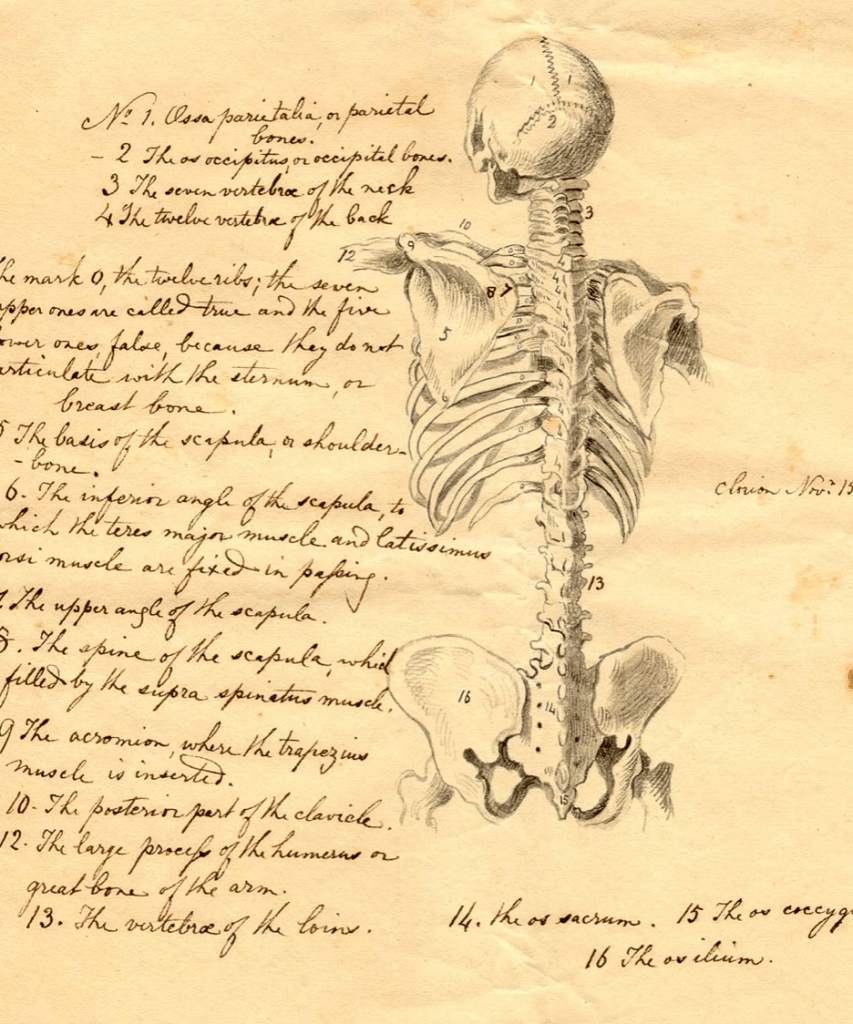 No 1. Ossa parietalia, or parietal
bones.
- 2 The os occipitus, or occipital bones.
3 The seven vertebræ of the neck
4 The twelve vertebræ of the back
he mark 0, the twelve ribs; the seven
pper ones are called true and the five
ower ones, false, because they do not
articulate with the sternum, or
breast bone.
5 The basis of the scapula, or shoulder-
-bone.
6. The inferior angle of the scapula, to
which the teres major muscle and latissimus
orsi muscle are fixed in passing.
7. The upper angle of the scapula.
8. The spine of the scapula, which
filled by the supra spinatus muscle.
9 The acromion, where the trapezius
muscle is inserted.
10. The posterior part of the clavicle.
12. The large process of the humerus or
great bone of the arm.
13. The vertebræ of the loins.
14. the os sacrum. 15 The os coccyg
16 The os ilium.
1 1
2
3
10
9
12
8 7
4
4
4
5
6
13
16
14
15
Nov: 15